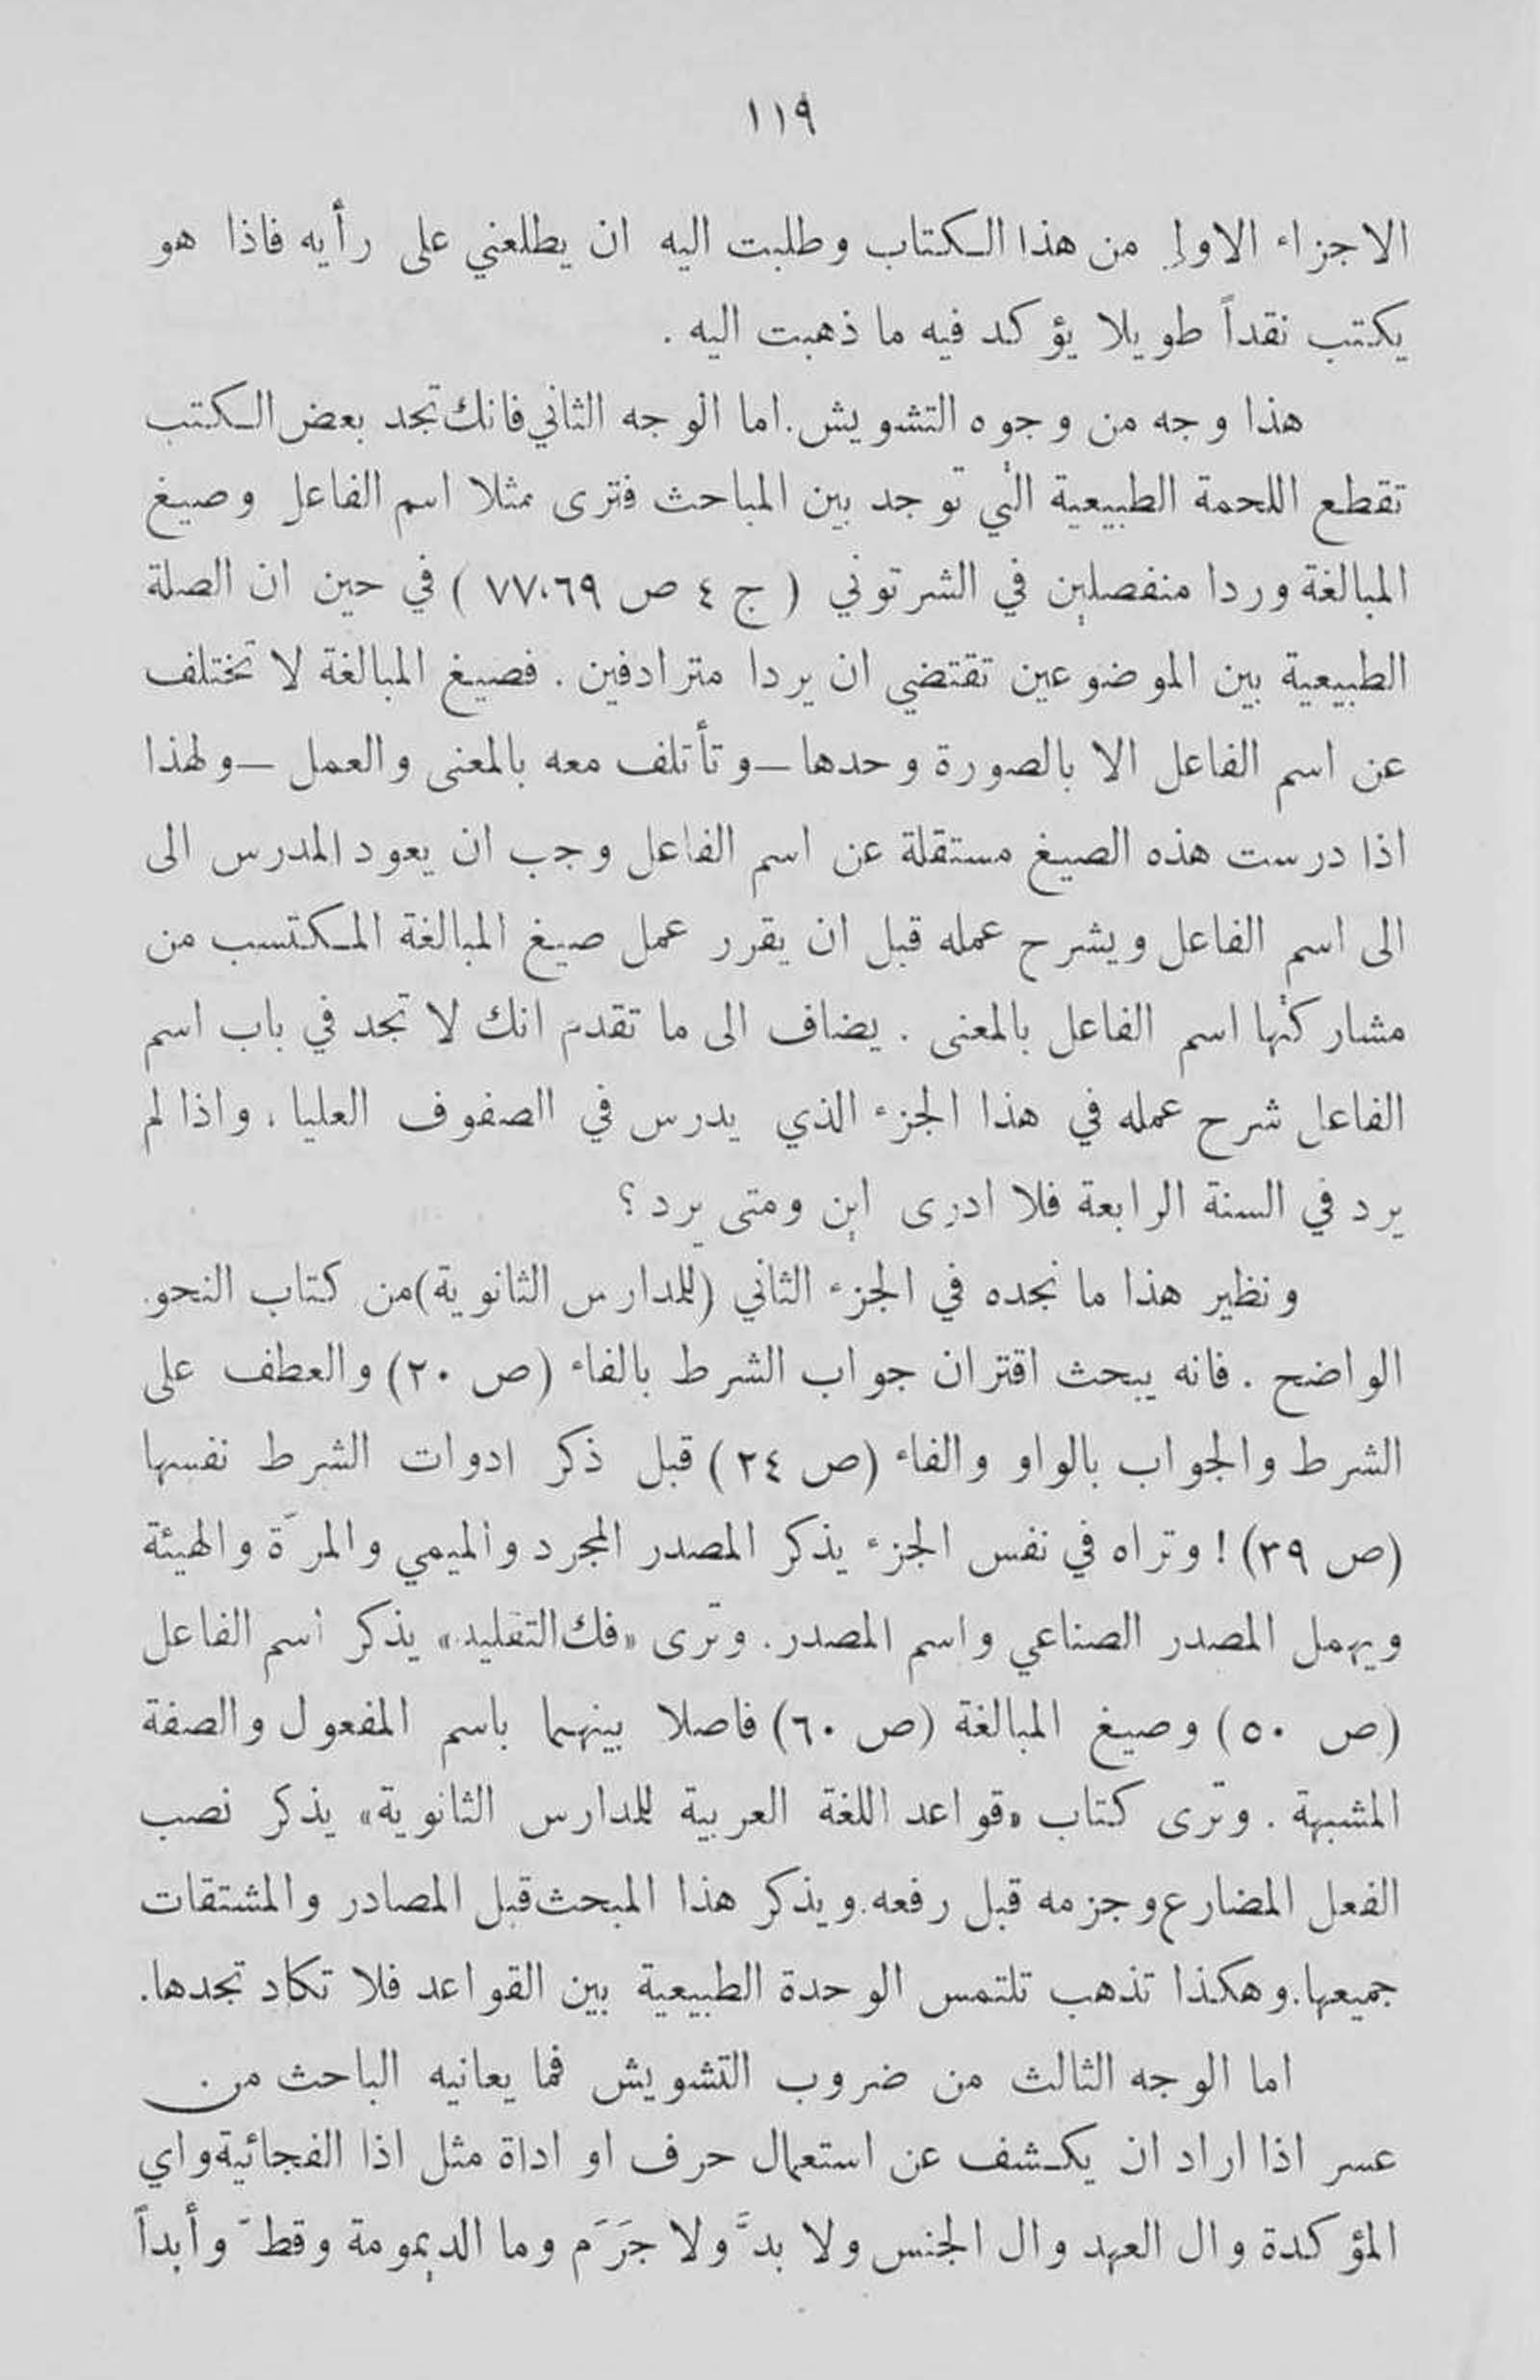 ١١٩
الاجزاء الاول من هذا الكتاب وطلبت اليه ان يطلعني على رأيه فاذا هو
يكتب نقداً طويلا يؤكد فيه ما ذهبت اليه .
هذا وجه من وجوه التشويش. اما الوجه الثاني فانك تجد بعض الكتب
تقطع اللحمة الطبيعية التي توجد بين المباحث فترى مثلا اسم الفاعل وصيغ
المبالغة وردا منفصلين في الشرتوني ( ج ٤ ص ٧٧،٦٩ ) في حين ان الصلة
الطبيعية بين الموضوعين تقتضي ان يردا مترادفين . فصيغ المبالغة لا تختلف
عن اسم الفاعل الا بالصورة وحدها — وتأتلف معه بالمعنى والعمل — ولهذا
اذا درست هذه الصيغ مستقلة عن اسم الفاعل وجب ان يعود المدرس الى
الى اسم الفاعل ويشرح عمله قبل ان يقرر عمل صيغ المبالغة المكتسب من
مشاركتها اسم الفاعل بالمعنى . يضاف الى ما تقدم انك لا تجد في باب اسم
الفاعل شرح عمله في هذا الجزء الذي يدرس في الصفوف العليا ، واذا لم
يرد في السنة الرابعة فلا ادرى اين ومتى يرد ؟
ونظير هذا ما نجده في الجزء الثاني (للمدارس الثانوية) من كتاب النحو
الواضح . فانه يبحث اقتران جواب الشرط بالفاء (ص ٢٠) والعطف على
الشرط والجواب بالواو والفاء (ص ٢٤) قبل ذكر ادوات الشرط نفسها
(ص ٣٩) ! وتراه في نفس الجزء يذكر المصدر المجرد والميمي والمرَّة والهيئة
ويهمل المصدر الصناعي واسم المصدر . وترى «فك التقليد» يذكر اسم الفاعل
(ص ٥٠) وصيغ المبالغة (ص ٦٠) فاصلا بينهما باسم المفعول والصفة
المشبهة . وترى كتاب «قواعد اللغة العربية للمدارس الثانوية» يذكر نصب
الفعل المضارع وجزمه قبل رفعه. ويذكر هذا المبحث قبل المصادر والمشتقات
جميعها. وهكذا تذهب تلتمس الوحدة الطبيعية بين القواعد فلا تكاد تجدها.
اما الوجه الثالث من ضروب التشويش فما يعانيه الباحث من
عسر اذا اراد ان يكشف عن استعمال حرف او اداة مثل اذا الفجائية واي
المؤكدة وال العهد وال الجنس ولا بدَّ ولا جَرَم وما الديمومة وقطَّ وأبداً